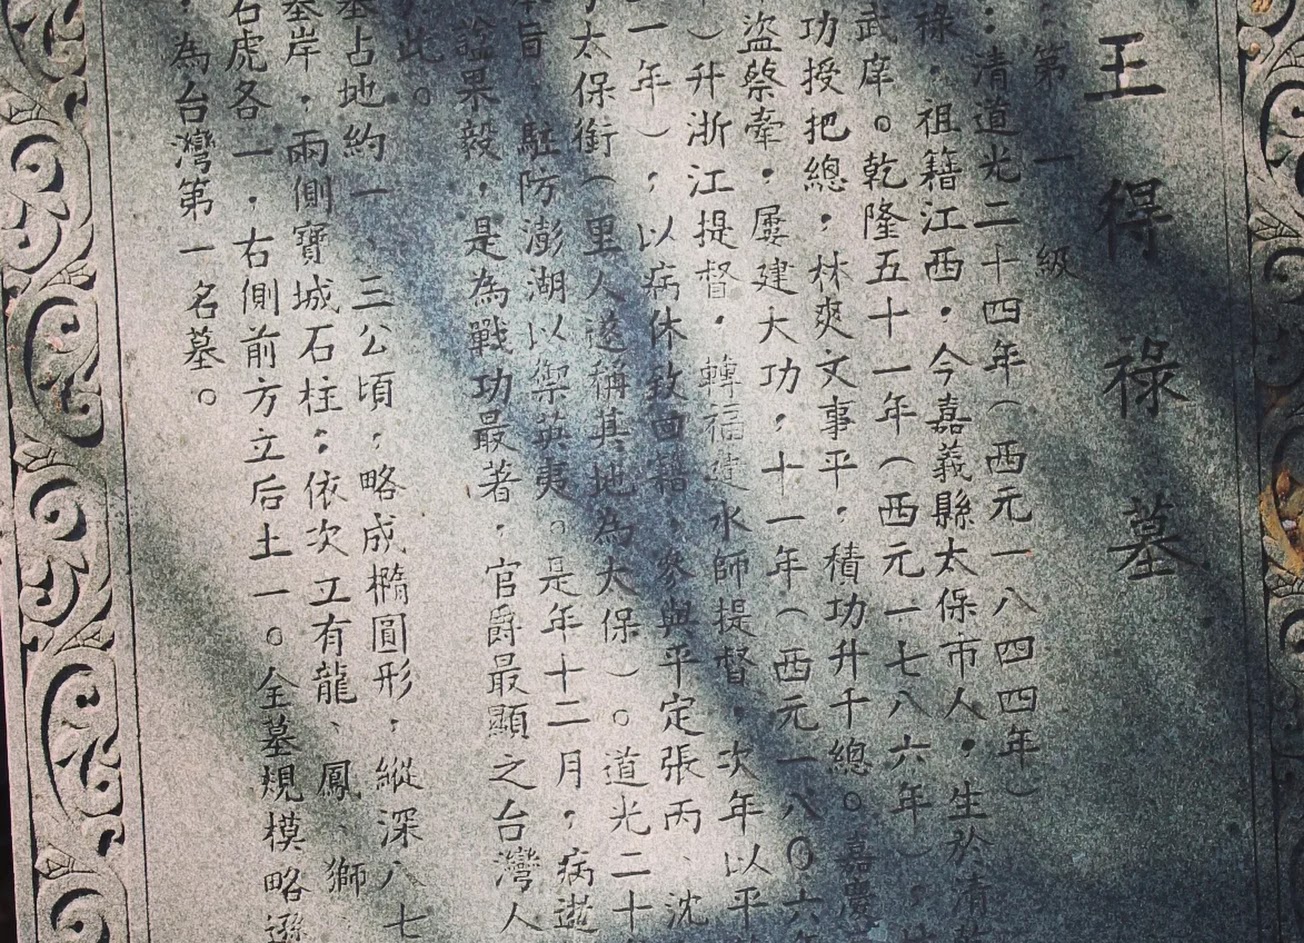 王得祿墓
第一級
：清道光二十四年（西元一八四四年）
祿，祖籍江西，今嘉義縣太保市人，生於清
武庠。乾隆五十一年（西元一七八六年），
功授把總，林爽文事平，積功升千總。嘉慶
盜蔡牽，屢建大功，十一年（西元一八〇六年
）升浙江提督，轉福建水師提督，次年以平
二一年），以病休致回籍，參與平定張丙、沈
太保銜（里人遂稱其地為太保）。道光二十
旨，駐防澎湖以禦英夷。是年十二月，病逝
諡果毅，是為戰功最著，官爵最顯之台灣人
此。
墓占地約一、三公頃，略成橢圓形，縱深八七
墓岸，兩側寶城石柱；依次立有龍、鳳、獅、
石虎各一，右側前方立后土一。全墓規模略遜
，為台灣第一名墓。